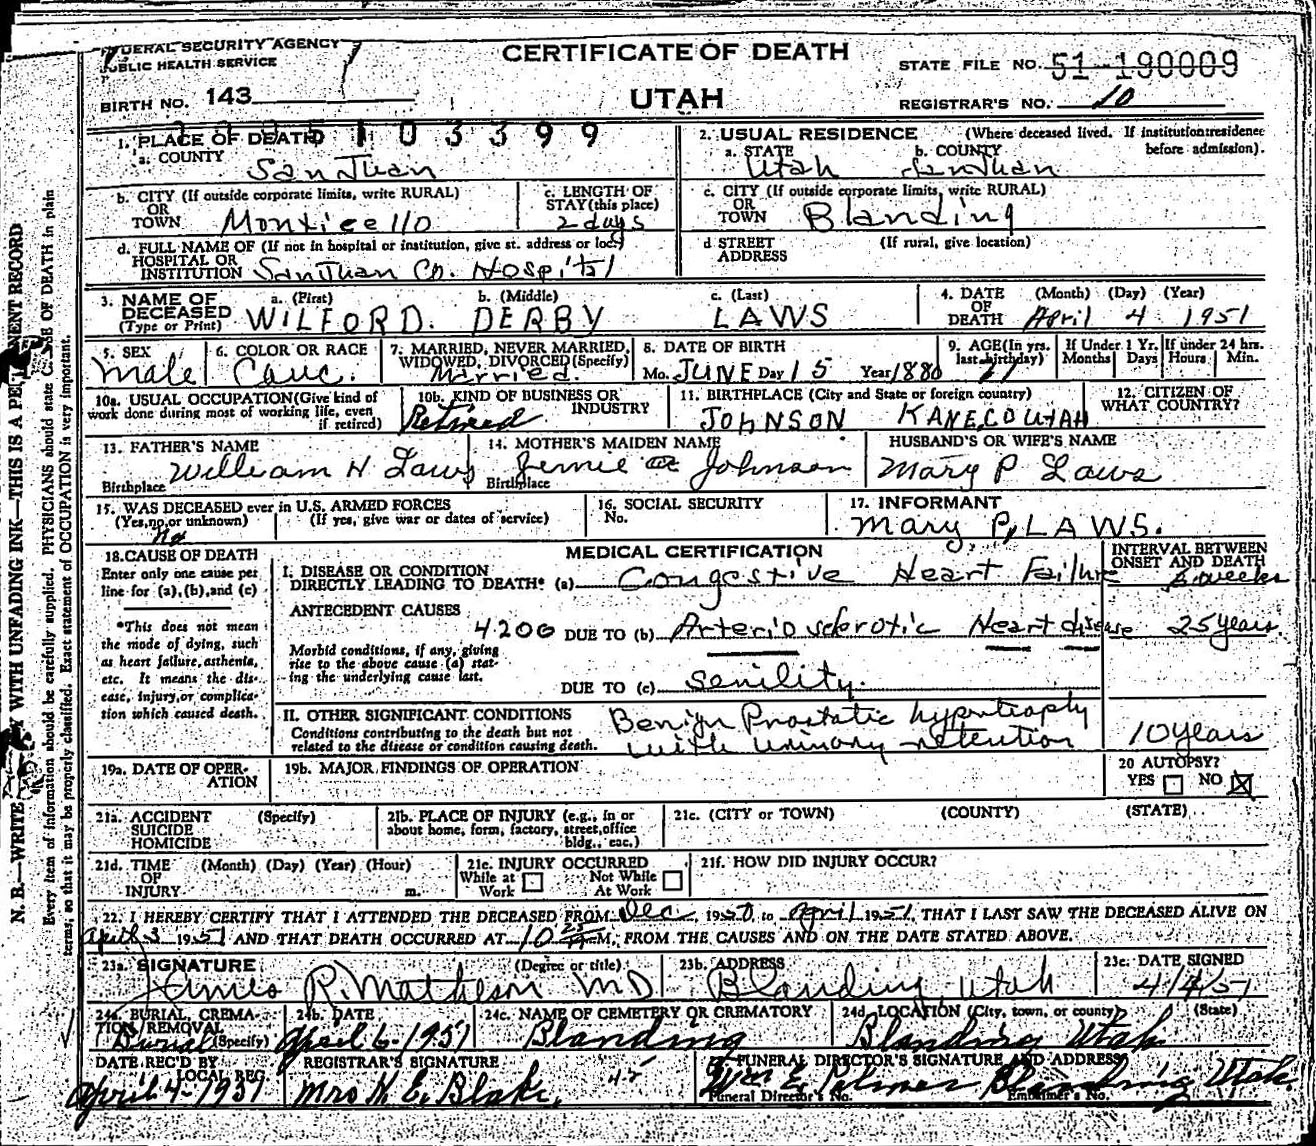 FEDERAL SECURITY AGENCY
PUBLIC HEALTH SERVICE
CERTIFICATE OF DEATH
STATE FILE NO. 51-190009
BIRTH NO. 143
UTAH
REGISTRAR'S NO. 10
103399
1. PLACE OF DEATH
a. COUNTY San Juan
2. USUAL RESIDENCE (Where deceased lived. If institution: residence before admission).
a. STATE Utah b. COUNTY San Juan
b. CITY (If outside corporate limits, write RURAL)
OR
TOWN Monticello
c. LENGTH OF STAY (this place)
2 days
c. CITY (If outside corporate limits, write RURAL)
OR
TOWN Blanding
d. FULL NAME OF (If not in hospital or institution, give st. address or loc.)
HOSPITAL OR
INSTITUTION San Juan Co. Hospital
d STREET ADDRESS (If rural, give location)
3. NAME OF DECEASED (Type or Print)
a. (First) b. (Middle) c. (Last)
WILFORD. DERBY LAWS
4. DATE OF DEATH (Month) (Day) (Year)
April 4 1951
5. SEX
Male
6. COLOR OR RACE
Cauc.
7. MARRIED, NEVER MARRIED, WIDOWED, DIVORCED (Specify)
Married.
8. DATE OF BIRTH
Mo. JUNE Day 15 Year 1880
9. AGE (In yrs. last birthday)
If Under 1 Yr. Months Days
If under 24 hrs. Hours Min.
10a. USUAL OCCUPATION (Give kind of work done during most of working life, even if retired)
Retired
10b. KIND OF BUSINESS OR INDUSTRY
11. BIRTHPLACE (City and State or foreign country)
JOHNSON KANE, CO UTAH
12. CITIZEN OF WHAT COUNTRY?
13. FATHER'S NAME
William H Laws
Birthplace
14. MOTHER'S MAIDEN NAME
Jennie Johnson
Birthplace
HUSBAND'S OR WIFE'S NAME
Mary P Laws
15. WAS DECEASED ever in U.S. ARMED FORCES
(Yes, no, or unknown) (If yes, give war or dates of service)
No
16. SOCIAL SECURITY
No.
17. INFORMANT
Mary P, LAWS.
18. CAUSE OF DEATH
Enter only one cause per line for (a), (b), and (c)
*This does not mean the mode of dying, such as heart failure, asthenia, etc. It means the disease, injury, or complication which caused death.
MEDICAL CERTIFICATION
INTERVAL BETWEEN ONSET AND DEATH
I. DISEASE OR CONDITION
DIRECTLY LEADING TO DEATH* (a) Congestive Heart Failure weeks
ANTECEDENT CAUSES
4200 DUE TO (b) Arteriosclerotic Heart disease 25 years
Morbid conditions, if any, giving rise to the above cause (a) stating the underlying cause last.
DUE TO (c) Senility.
II. OTHER SIGNIFICANT CONDITIONS
Conditions contributing to the death but not related to the disease or condition causing death.
Benign Prostatic hypertrophy
with urinary retention 10 years
19a. DATE OF OPERATION
19b. MAJOR FINDINGS OF OPERATION
20 AUTOPSY?
YES ☐ NO ☒
21a. ACCIDENT SUICIDE HOMICIDE (Specify)
21b. PLACE OF INJURY (e.g., in or about home, form, factory, street, office bldg., etc.)
21c. (CITY or TOWN) (COUNTY) (STATE)
21d. TIME OF INJURY (Month) (Day) (Year) (Hour) m.
21e. INJURY OCCURRED
While at Work ☐ Not While At Work ☐
21f. HOW DID INJURY OCCUR?
22. I HEREBY CERTIFY THAT I ATTENDED THE DECEASED FROM Dec, 1950, to April 1951, THAT I LAST SAW THE DECEASED ALIVE ON
April 3 1951 AND THAT DEATH OCCURRED AT 10 25 A M., FROM THE CAUSES AND ON THE DATE STATED ABOVE.
23a. SIGNATURE (Degree or title)
James R. Matheson MD
23b. ADDRESS
Blanding, Utah
23c. DATE SIGNED
4/4/51
24a. BURIAL, CREMATION, REMOVAL (Specify)
Burial
24b. DATE
April 6-1951
24c. NAME OF CEMETERY OR CREMATORY
Blanding
24d. LOCATION (City, town, or county) (State)
Blanding Utah
DATE REC'D BY LOCAL REG.
April 4-1951
REGISTRAR'S SIGNATURE
Mrs H. E. Blake,
FUNERAL DIRECTOR'S SIGNATURE AND ADDRESS
Wm E. Palmer Blanding Utah.
Funeral Director's No. Embalmer's No.
N. B.—WRITE WITH UNFADING INK—THIS IS A PERMANENT RECORD
Every item of information should be carefully supplied. PHYSICIANS should state CAUSE OF DEATH in plain
terms, so that it may be properly classified. Exact statement of OCCUPATION is very important.